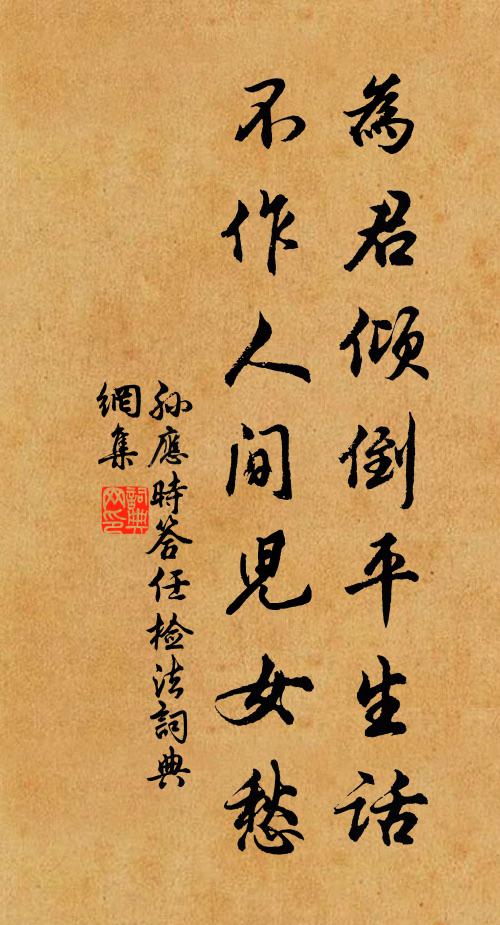 為君傾倒平生話
不作人間兒女愁
孫應時答任檢法詞典
網集
詞典
网印